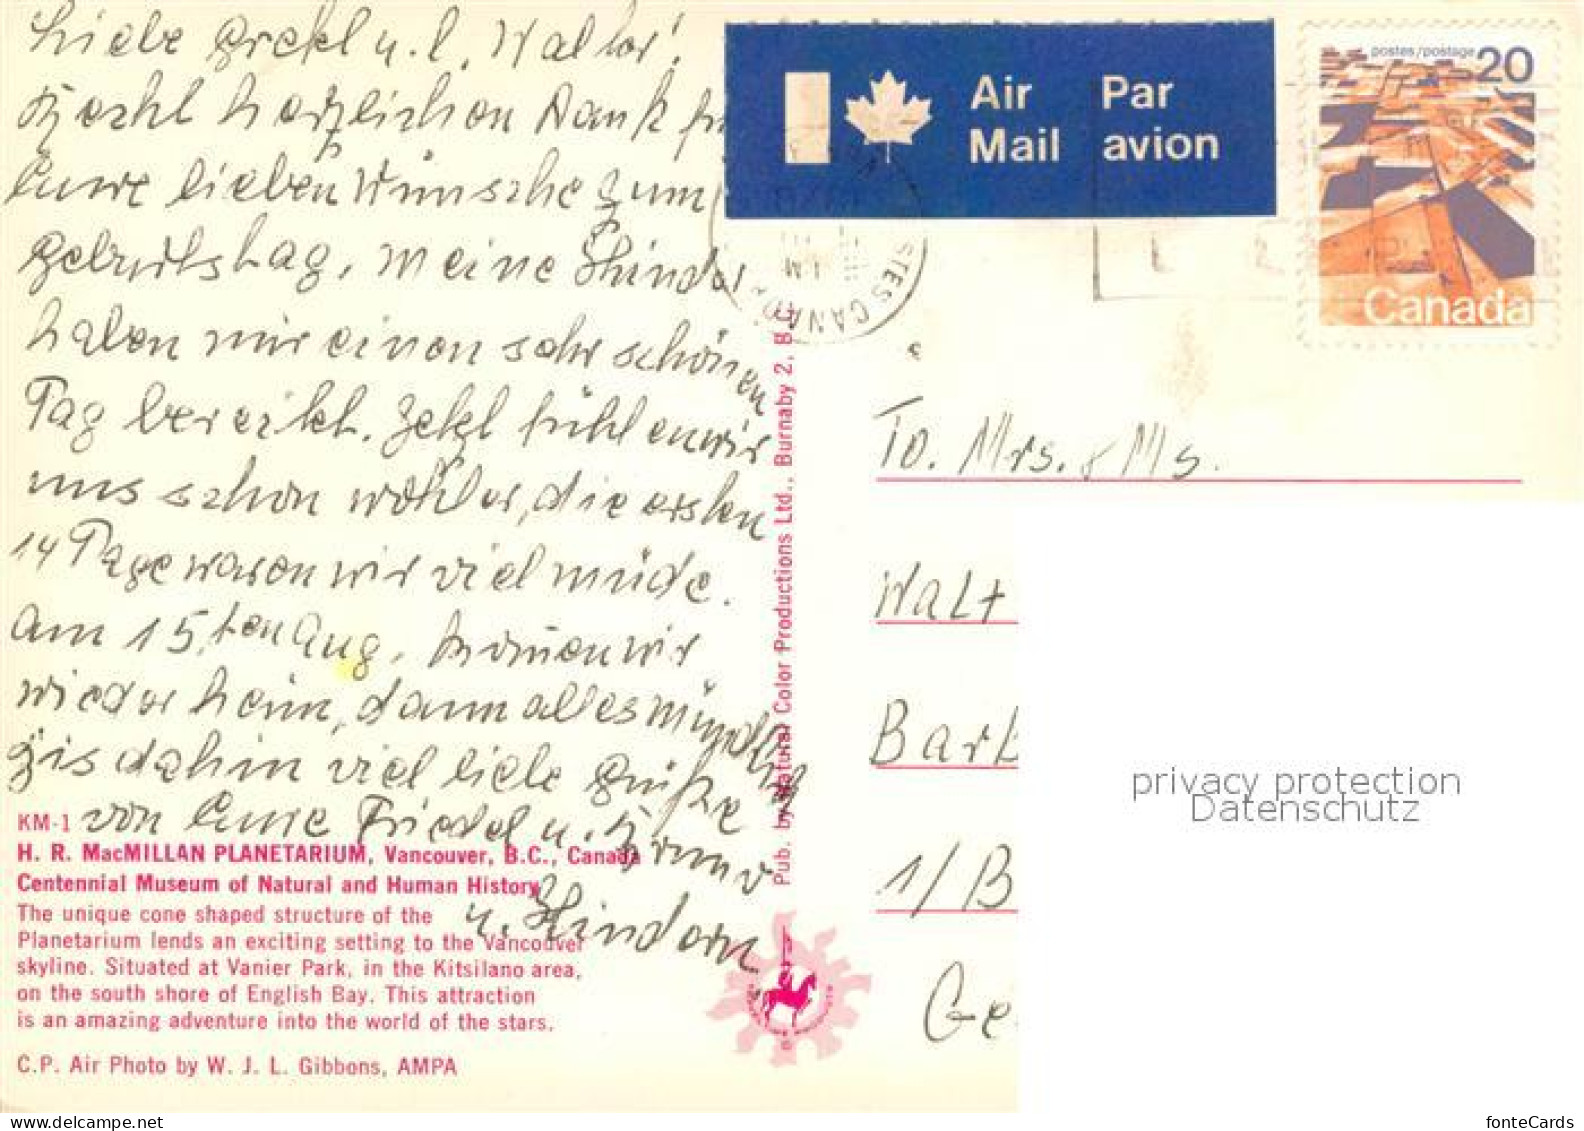 Liebe Gretel u. l. Walter!
Recht herzlichen Dank für
Eure lieben Wünsche zum
Geburtstag, meine Kinder
haben mir einen sehr schönen
Tag bereitet. Jetzt fühlen wir
uns schon wohler, die ersten
14 Tage waren wir viel müde.
Am 15.ten Aug. kommen wir
wieder heim, dann alles mündlich
Bis dahin viel liebe Grüße
von Eure Friedel u.
u. Kindern
Air Mail Par avion
postes/postage 20
Canada
STES CANAD
To. Mrs. & Ms.
Walt
Barb
1/B
Ge
KM-1
H. R. MacMILLAN PLANETARIUM, Vancouver, B.C., Canada
Centennial Museum of Natural and Human History
The unique cone shaped structure of the
Planetarium lends an exciting setting to the Vancouver
skyline. Situated at Vanier Park, in the Kitsilano area,
on the south shore of English Bay. This attraction
is an amazing adventure into the world of the stars.
C.P. Air Photo by W. J. L. Gibbons, AMPA
Pub. by Natural Color Productions Ltd., Burnaby 2, B.C.
privacy protection
Datenschutz
fonteCards